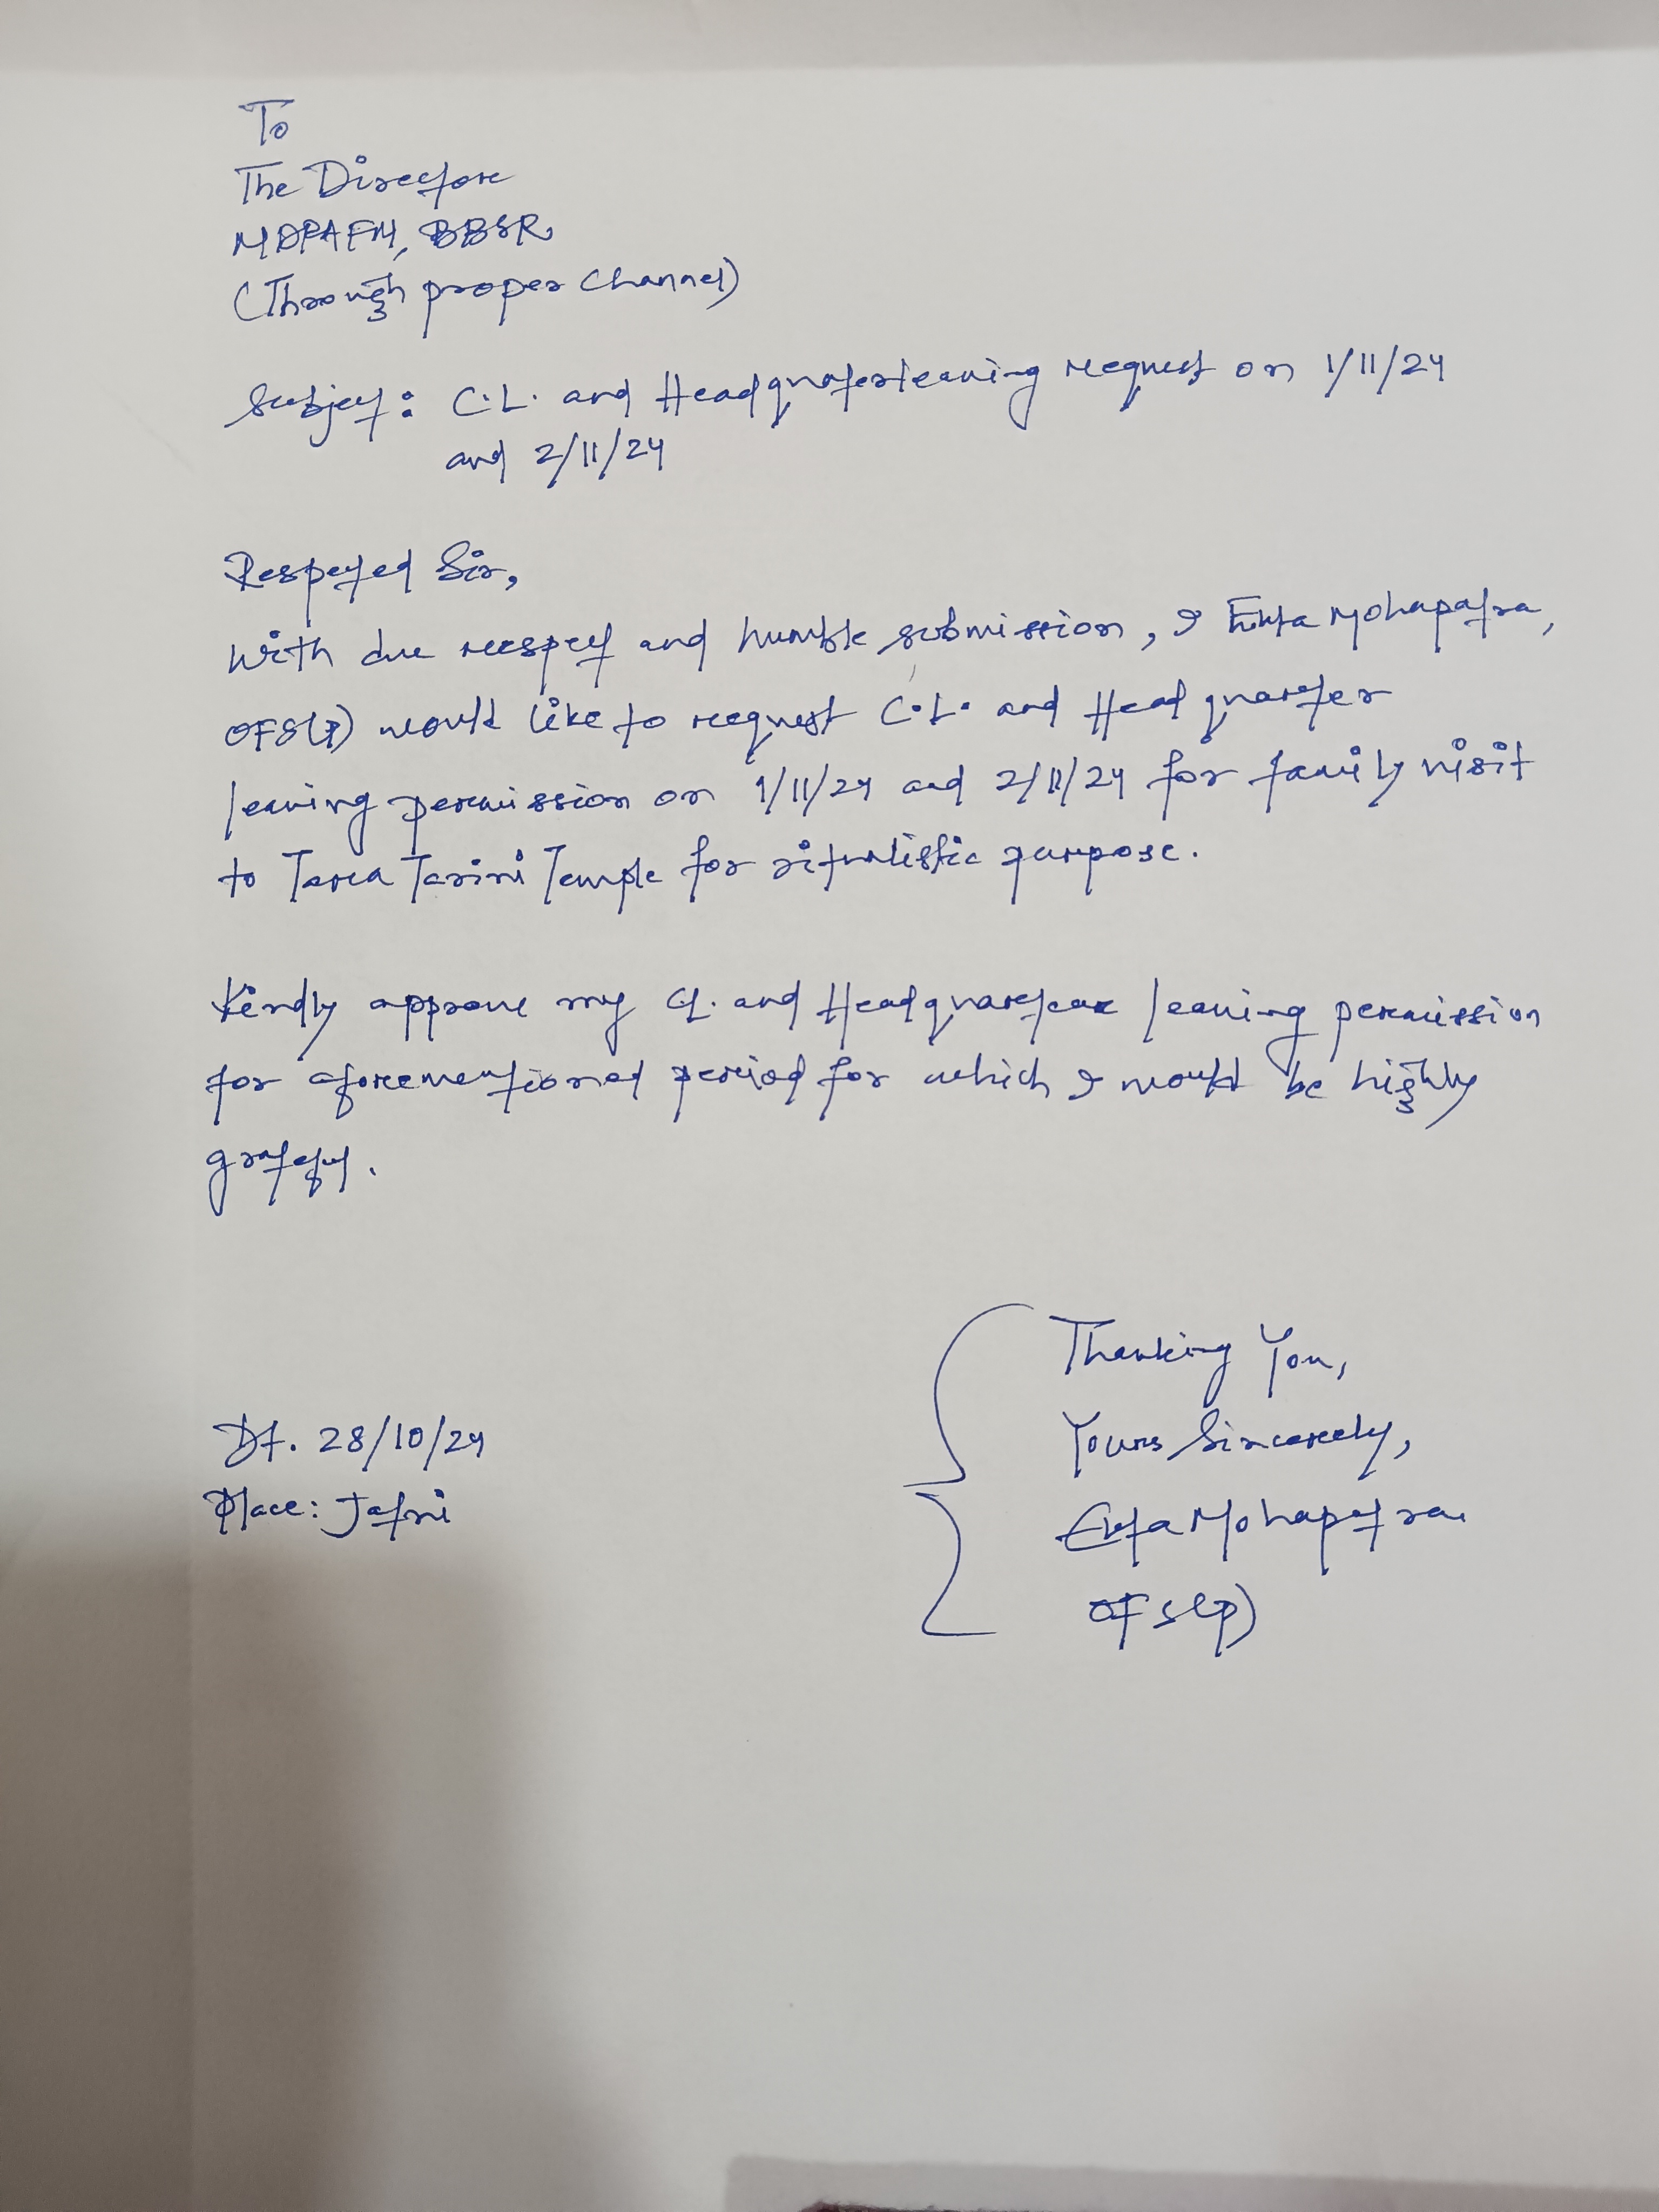 To
The Director
MDPAFM, BBSR
(Through proper Channel)
Subject: C.L. and Headquarter leaving request on 1/11/24
and 2/11/24
Respected Sir,
With due respect and humble submission, I Ekta Mohapatra,
OFS(P) would like to request C.L. and Head quarter
leaving permission on 1/11/24 and 2/11/24 for family visit
to Tara Tarini Temple for ritualistic purpose.
Kindly approve my CL. and Headquarter leaving permission
for aforementioned period for which I would be highly
grateful.
Thanking You,
Yours Sincerely,
Ekta Mohapatra
OFS(P)
Dt. 28/10/24
Place: Jatni